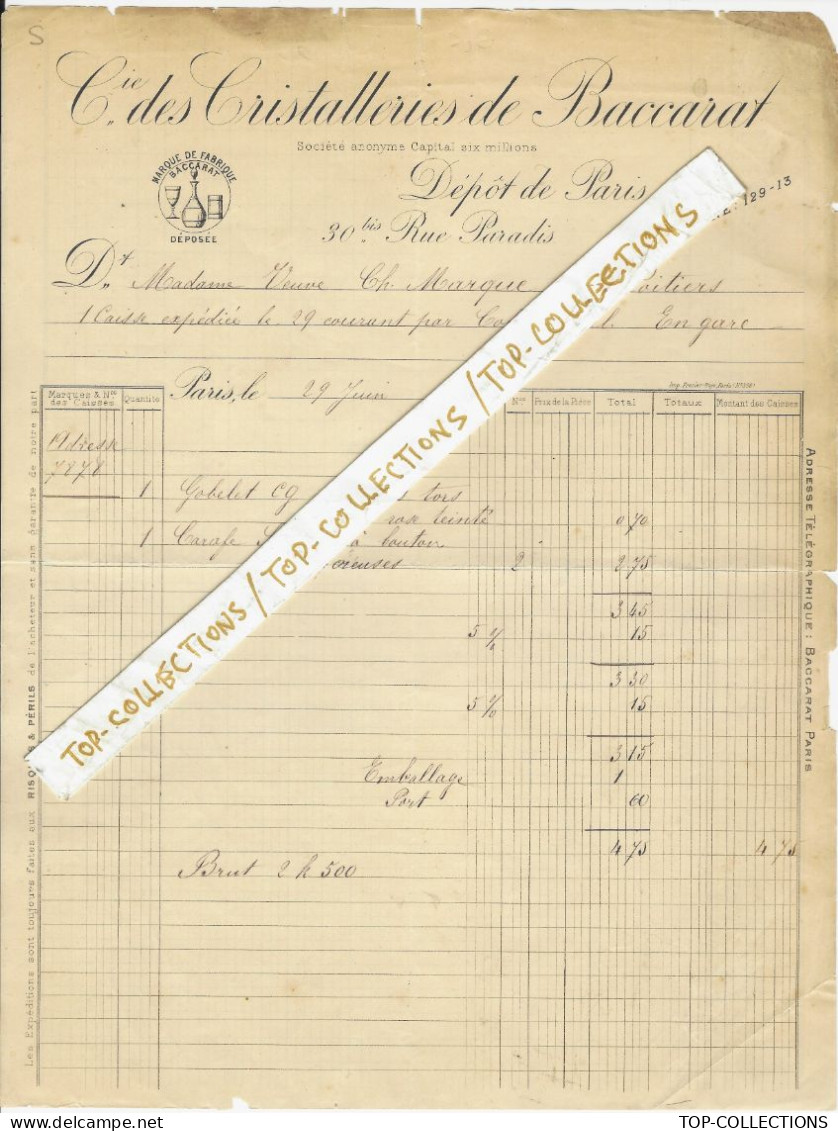 S
Cie des Cristalleries de Baccarat
Société anonyme Capital six millions
MARQUE DE FABRIQUE
BACCARAT
DÉPOSÉE
Dépôt de Paris
129-13
30bis Rue Paradis
Dt Madame Veuve Ch. Marque Poitiers
1 Caisse expédiée le 29 courant par En gare
Paris, le 29 Juin
Marques & Nos des Caisses Quantités Nos Prix de la Pièce Total Totaux Montant des Caisses
Adresse
7878
1 Gobelet CG tors
rose teinté 0 70
1 Carafe à bouton
creuses 2 2 75
3 45
5 % 15
3 30
5 % 15
3 15
Emballage 1
Port 60
4 75 4 75
Brut 2 k 500
Les Expéditions sont toujours faites aux RISQUES & PÉRILS de l'acheteur et sans garantie de notre part
ADRESSE TÉLÉGRAPHIQUE: BACCARAT PARIS
TOP-COLLECTIONS / TOP-COLLECTIONS / TOP-COLLECTIONS / TOP-COLLECTIONS
TOP-COLLECTIONS